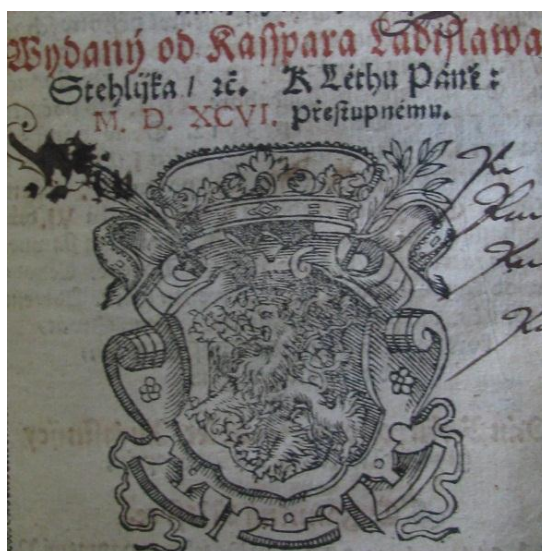 Wydaný od Kaſſpara Ladiſlawa
Stehlijka / ꝛč. K Léthu Páně:
M. D. XCVI. přeſtupnému.